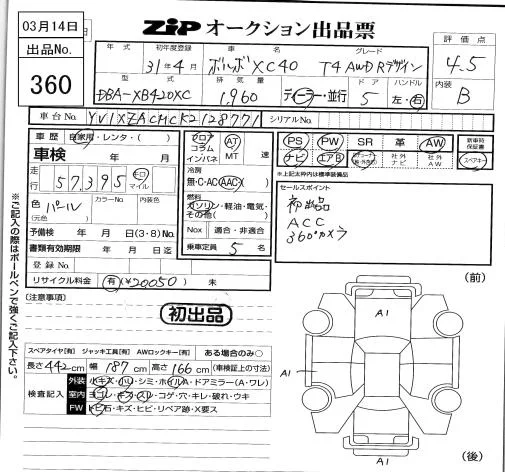 03月14日
ZIP オークション出品票
出品No.
360
年式 初年度登録 車名 グレード
31年4月 ボルボ XC40 T4 AWD Rデザイン
評価点
4.5
型式 排気量 ドア ハンドル
DBA-XB420XC 1,960 ディーラー・並行 5 左・右
内装
B
車台No. YV1XZACMCK2128771 シリアルNo.
車歴 自家用・レンタ・( )
車検 年 月
走行 57,395 キロ マイル
色 パール
(元色)
カラーNo. 内装色
予備検 年 月 日(3・8)No.
書類有効期限 年 月 日迄
登録No.
リサイクル料金 有(¥20050) 未
フロア
コラム
インパネ
AT
MT 速
冷房
無・C・AC・AAC・( )
燃料
ガソリン・軽油・電気・
その他( )
Nox 適合・非適合
乗車定員 5 名
PS PW SR 革 AW
ナビ エアB 社外ナビ 社外AW
新車時保証書
スペアキー
*上記太枠内は標準装備品
セールスポイント
初出品
ACC
360°カメラ
(注意事項)
初出品
スペアタイヤ[有] ジャッキ工具[有] AWロックキー[有] ある場合のみ○
長さ442cm 幅187cm 高さ166cm (車検証上の寸法)
検査記入
外装 小キズ・小U・シミ・ホイルA・ドアミラー(A・ワレ)
室内 ヨゴレ・キズ・スレ・コゲ・穴・キレ・破れ・ウキ
FW トビ石・キズ・ヒビ・リペア跡・X要ス
(前)
A1
A1
A1
(後)
※ご記入の際はボールペンで強くご記入下さい。